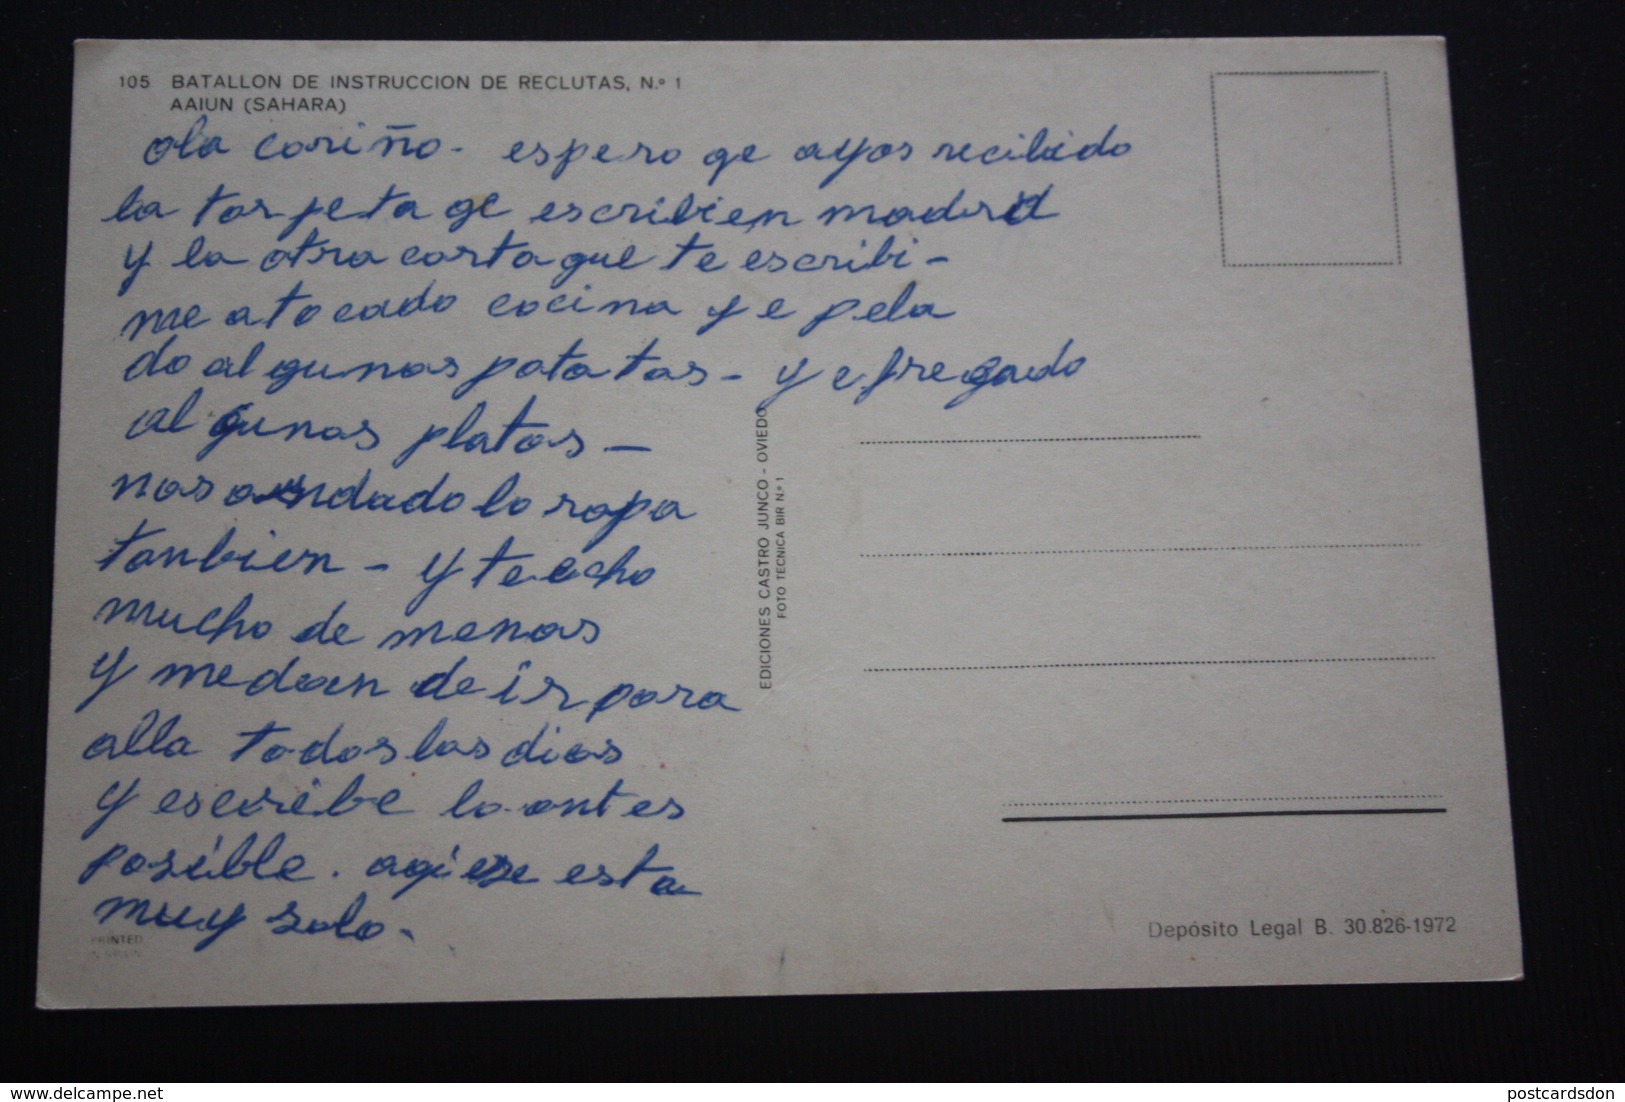 105 BATALLON DE INSTRUCCION DE RECLUTAS, N.º 1
AAIUN (SAHARA)
ola cariño - espero qe ayas recibido
la tarjeta qe escribi en madrid
y la otra carta que te escribi -
me a tocado cocina y e pela
do algunas patatas - y e fregado
algunos platos -
nos a andado la ropa
tanbien - y te echo
mucho de menos
y me dean de ir para
alla todos los dias
y escribe lo antes
posible. aqi ese esta
muy solo.
PRINTED
IN SPAIN
EDICIONES CASTRO JUNCO - OVIEDO
FOTO TECNICA BIR N.º 1
Depósito Legal B. 30.826-1972
www.delcampe.net
postcardsdon